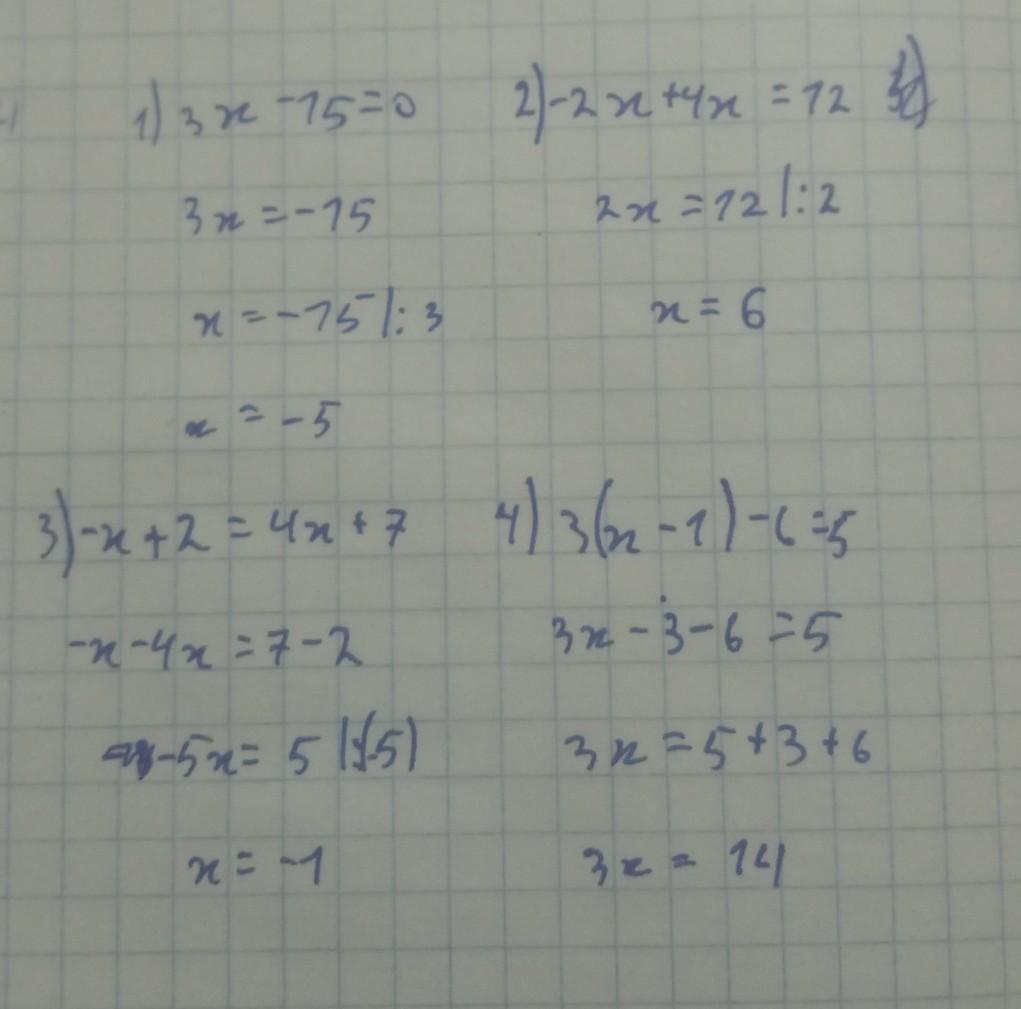 1) 3x -15=0
3x =-15
x =-15 |: 3
x = -5
2) -2x+4x = 12
2x =12 |: 2
x = 6
3) -x+2 = 4x + 7
-x-4x = 7-2
-5x= 5 |:(-5)
x = -1
4) 3(x-1) -6 =5
3x-3-6 =5
3x =5+3+6
3x = 14